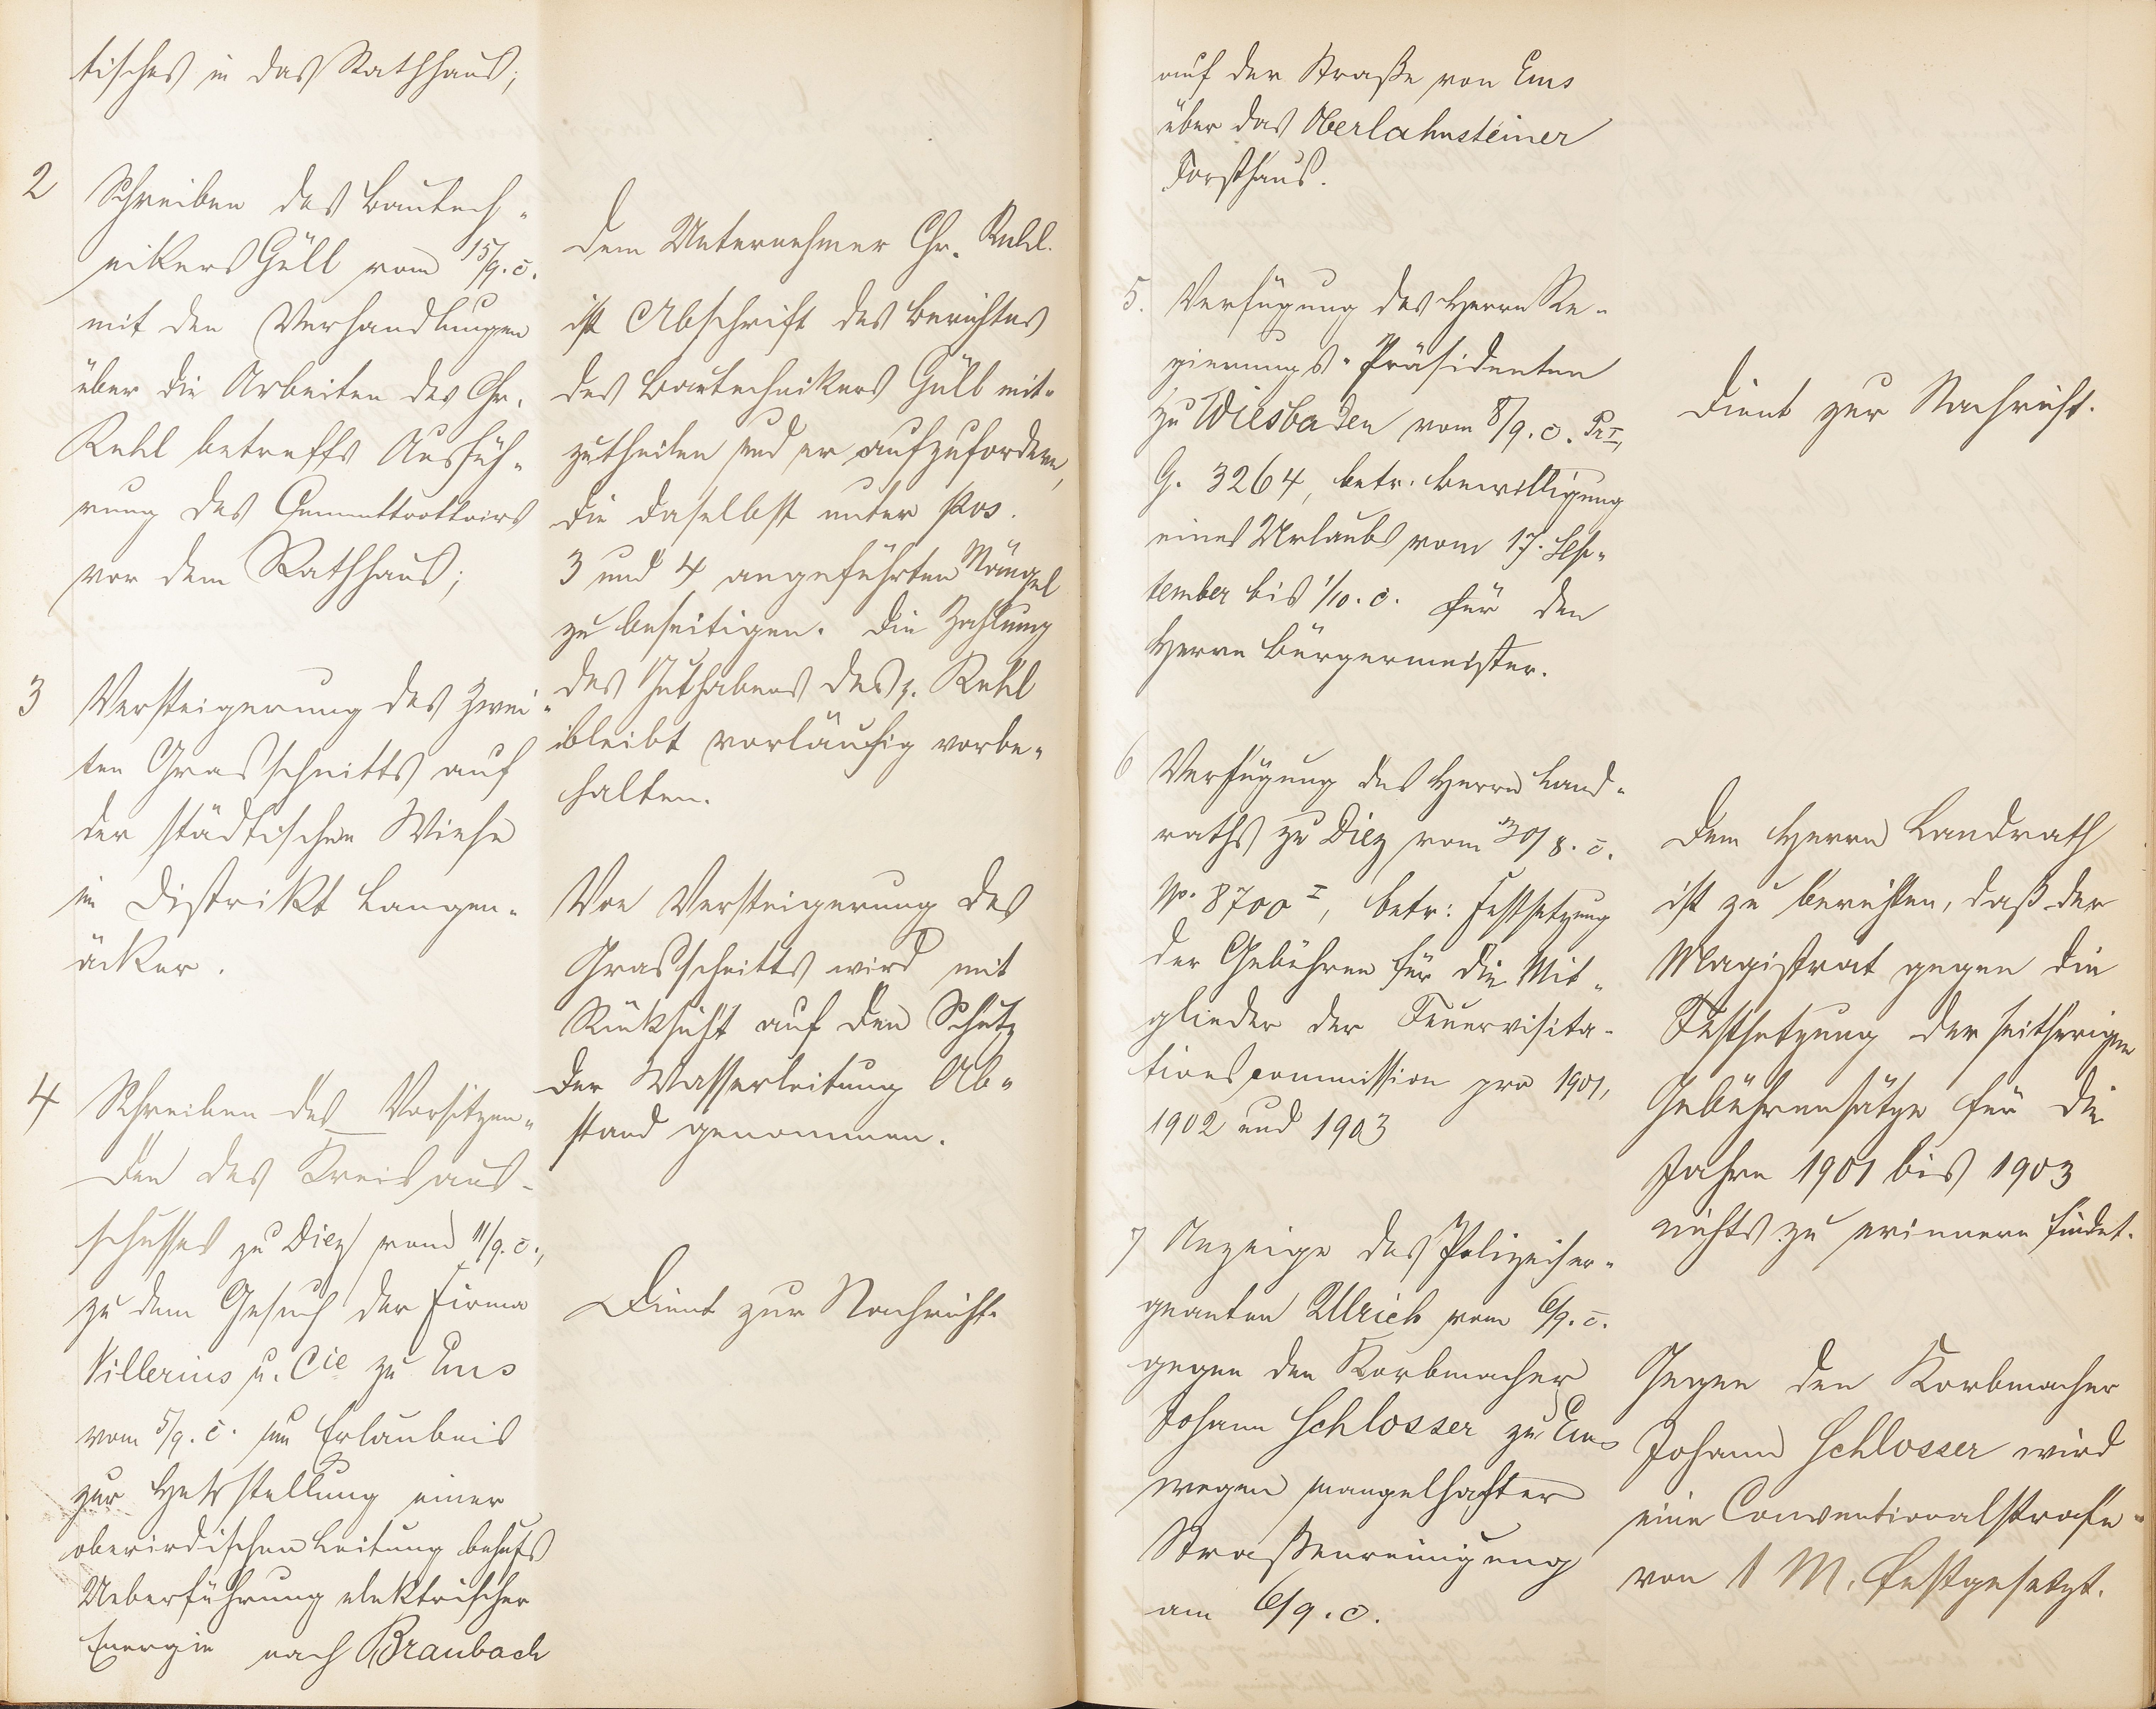 tisches in das Rathhaus;
2
Schreiben des Bautech-
nikers Güll vom 15/9. c.
mit den Verhandlungen
über die Arbeiten des Chr.
Rehl betreffs Ausfüh-
rung des Cementtrottoirs
vor dem Rathhaus;
Dem Unternehmer Chr. Rehl
ist Abschrift des Berichtes
des Bautechnikers Güll mit-
zutheilen und er aufzufordern,
die daselbst unter Pos.
3 und 4 angeführten Mängel
zu beseitigen. Die Zahlung
des Guthabens des p. Rehl
bleibt vorläufig vorbe-
halten.
3
Versteigerung des zwei-
ten Grasschnitts auf
der städtischen Wiese
im Distrikt Langen-
äcker.
Von Versteigerung des
Grasschnitts wird mit
Rücksicht auf den Schutz
der Wasserleitung Ab-
stand genommen.
4
Schreiben des Vorsitzen-
den des Kreisaus-
schusses zu Diez vom 11/9. c.,
zu dem Gesuch der Firma
Villerius u. Cie zu Ems
vom 5/9. c. um Erlaubnis
zur Herstellung einer
oberirdischen Leitung behufs
Ueberführung elektrischer
Energie nach Braubach
Dient zur Nachricht.
auf der Straße von Ems
über das Oberlahnsteiner
Forsthaus.
5.
Verfügung des Herrn Re-
gierungs-Präsidenten
zu Wiesbaden vom 8/9. c. Pr I,
G. 3264, betr. Bewilligung
eines Urlaubs vom 17. Sep-
tember bis 1/10. c. für den
Herrn Bürgermeister.
Dient zur Nachricht.
6
Verfügung des Herrn Land-
raths zu Diez vom 30/8. c.
No. 8700 I, betr: Festsetzung
der Gebühren für die Mit-
glieder der Feuervisita-
tionscommission pro 1901,
1902 und 1903
Dem Herrn Landrath
ist zu berichten, daß der
Magistrat gegen die
Festsetzung der seitherigen
Gebührensätze für die
Jahre 1901 bis 1903
nichts zu erinnern findet.
7
Anzeige des Polizeiser-
geanten Ullrich vom 6/9. c.
gegen den Korbmacher
Johann Schlosser zu Ems
wegen mangelhafter
Straßenreinigung
am 6/9. c.
Gegen den Korbmacher
Johann Schlosser wird
eine Conventionalstrafe
von 1 M. festgesetzt.